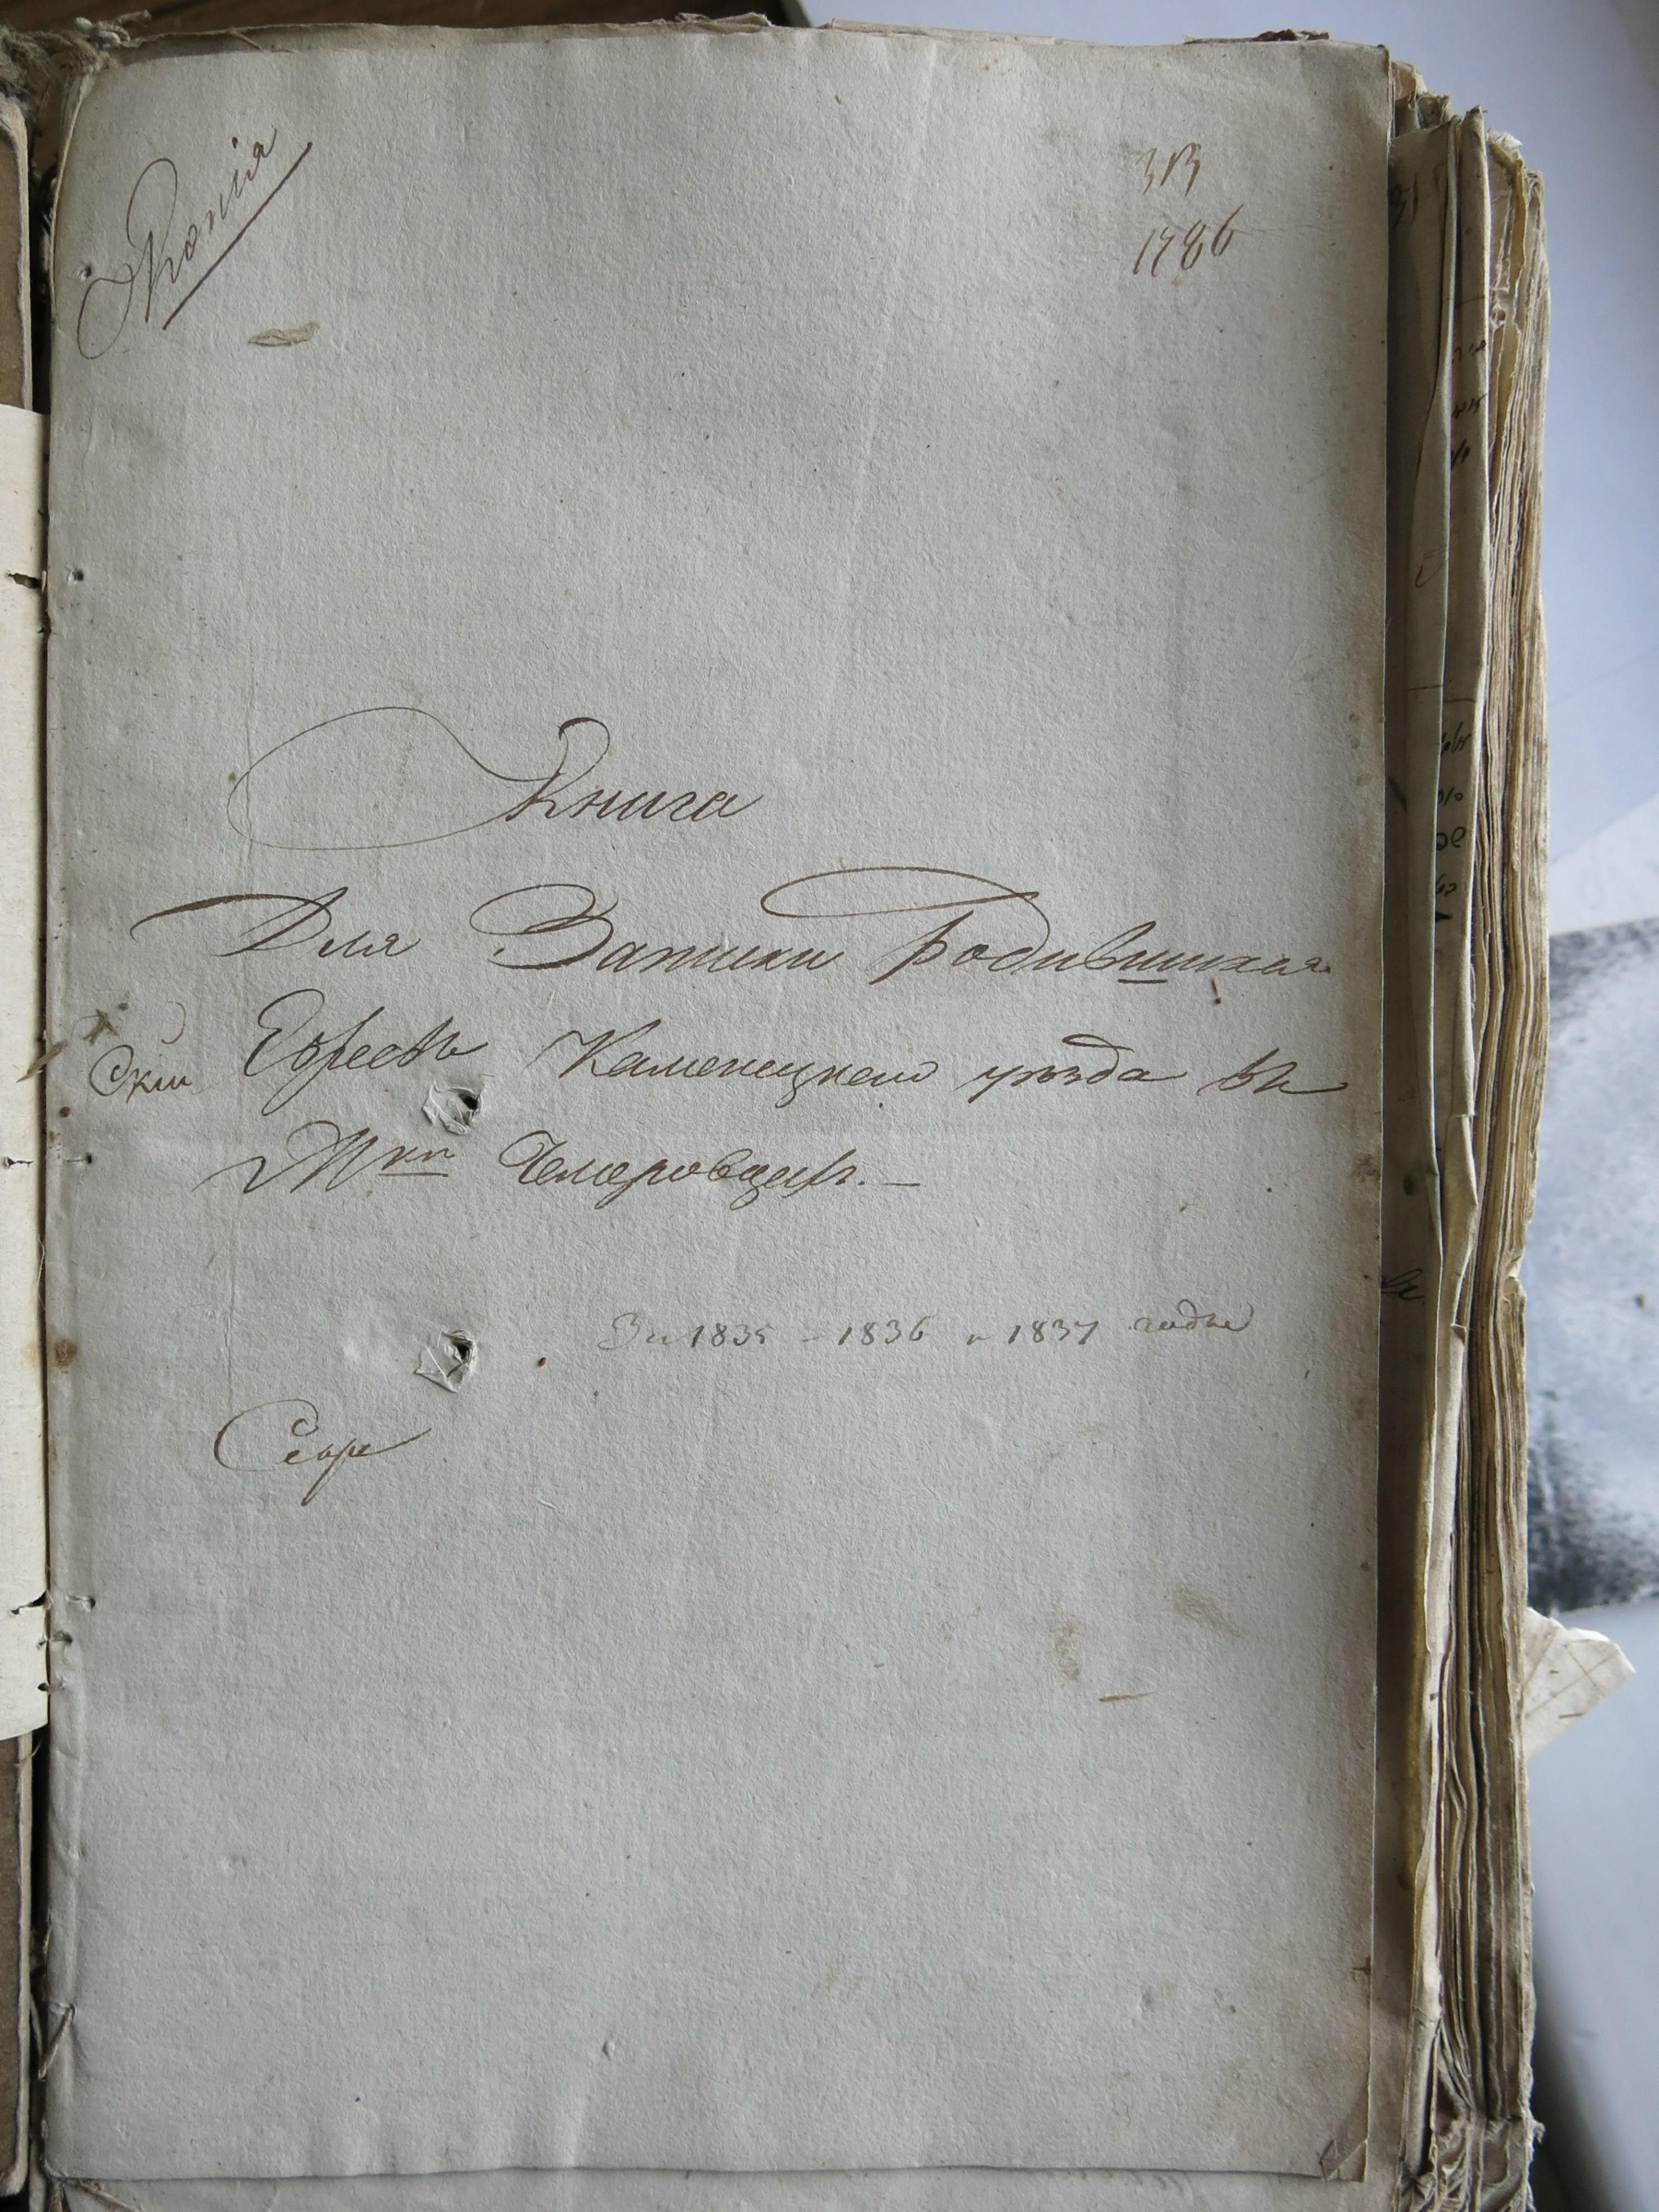 Копія
313
1786
Книга
Для Записки Родившихся
Евреевъ Каменецкаго уѣзда въ
Мкѣ Чемеровцахъ.—
За 1835 – 1836 и 1837 годы